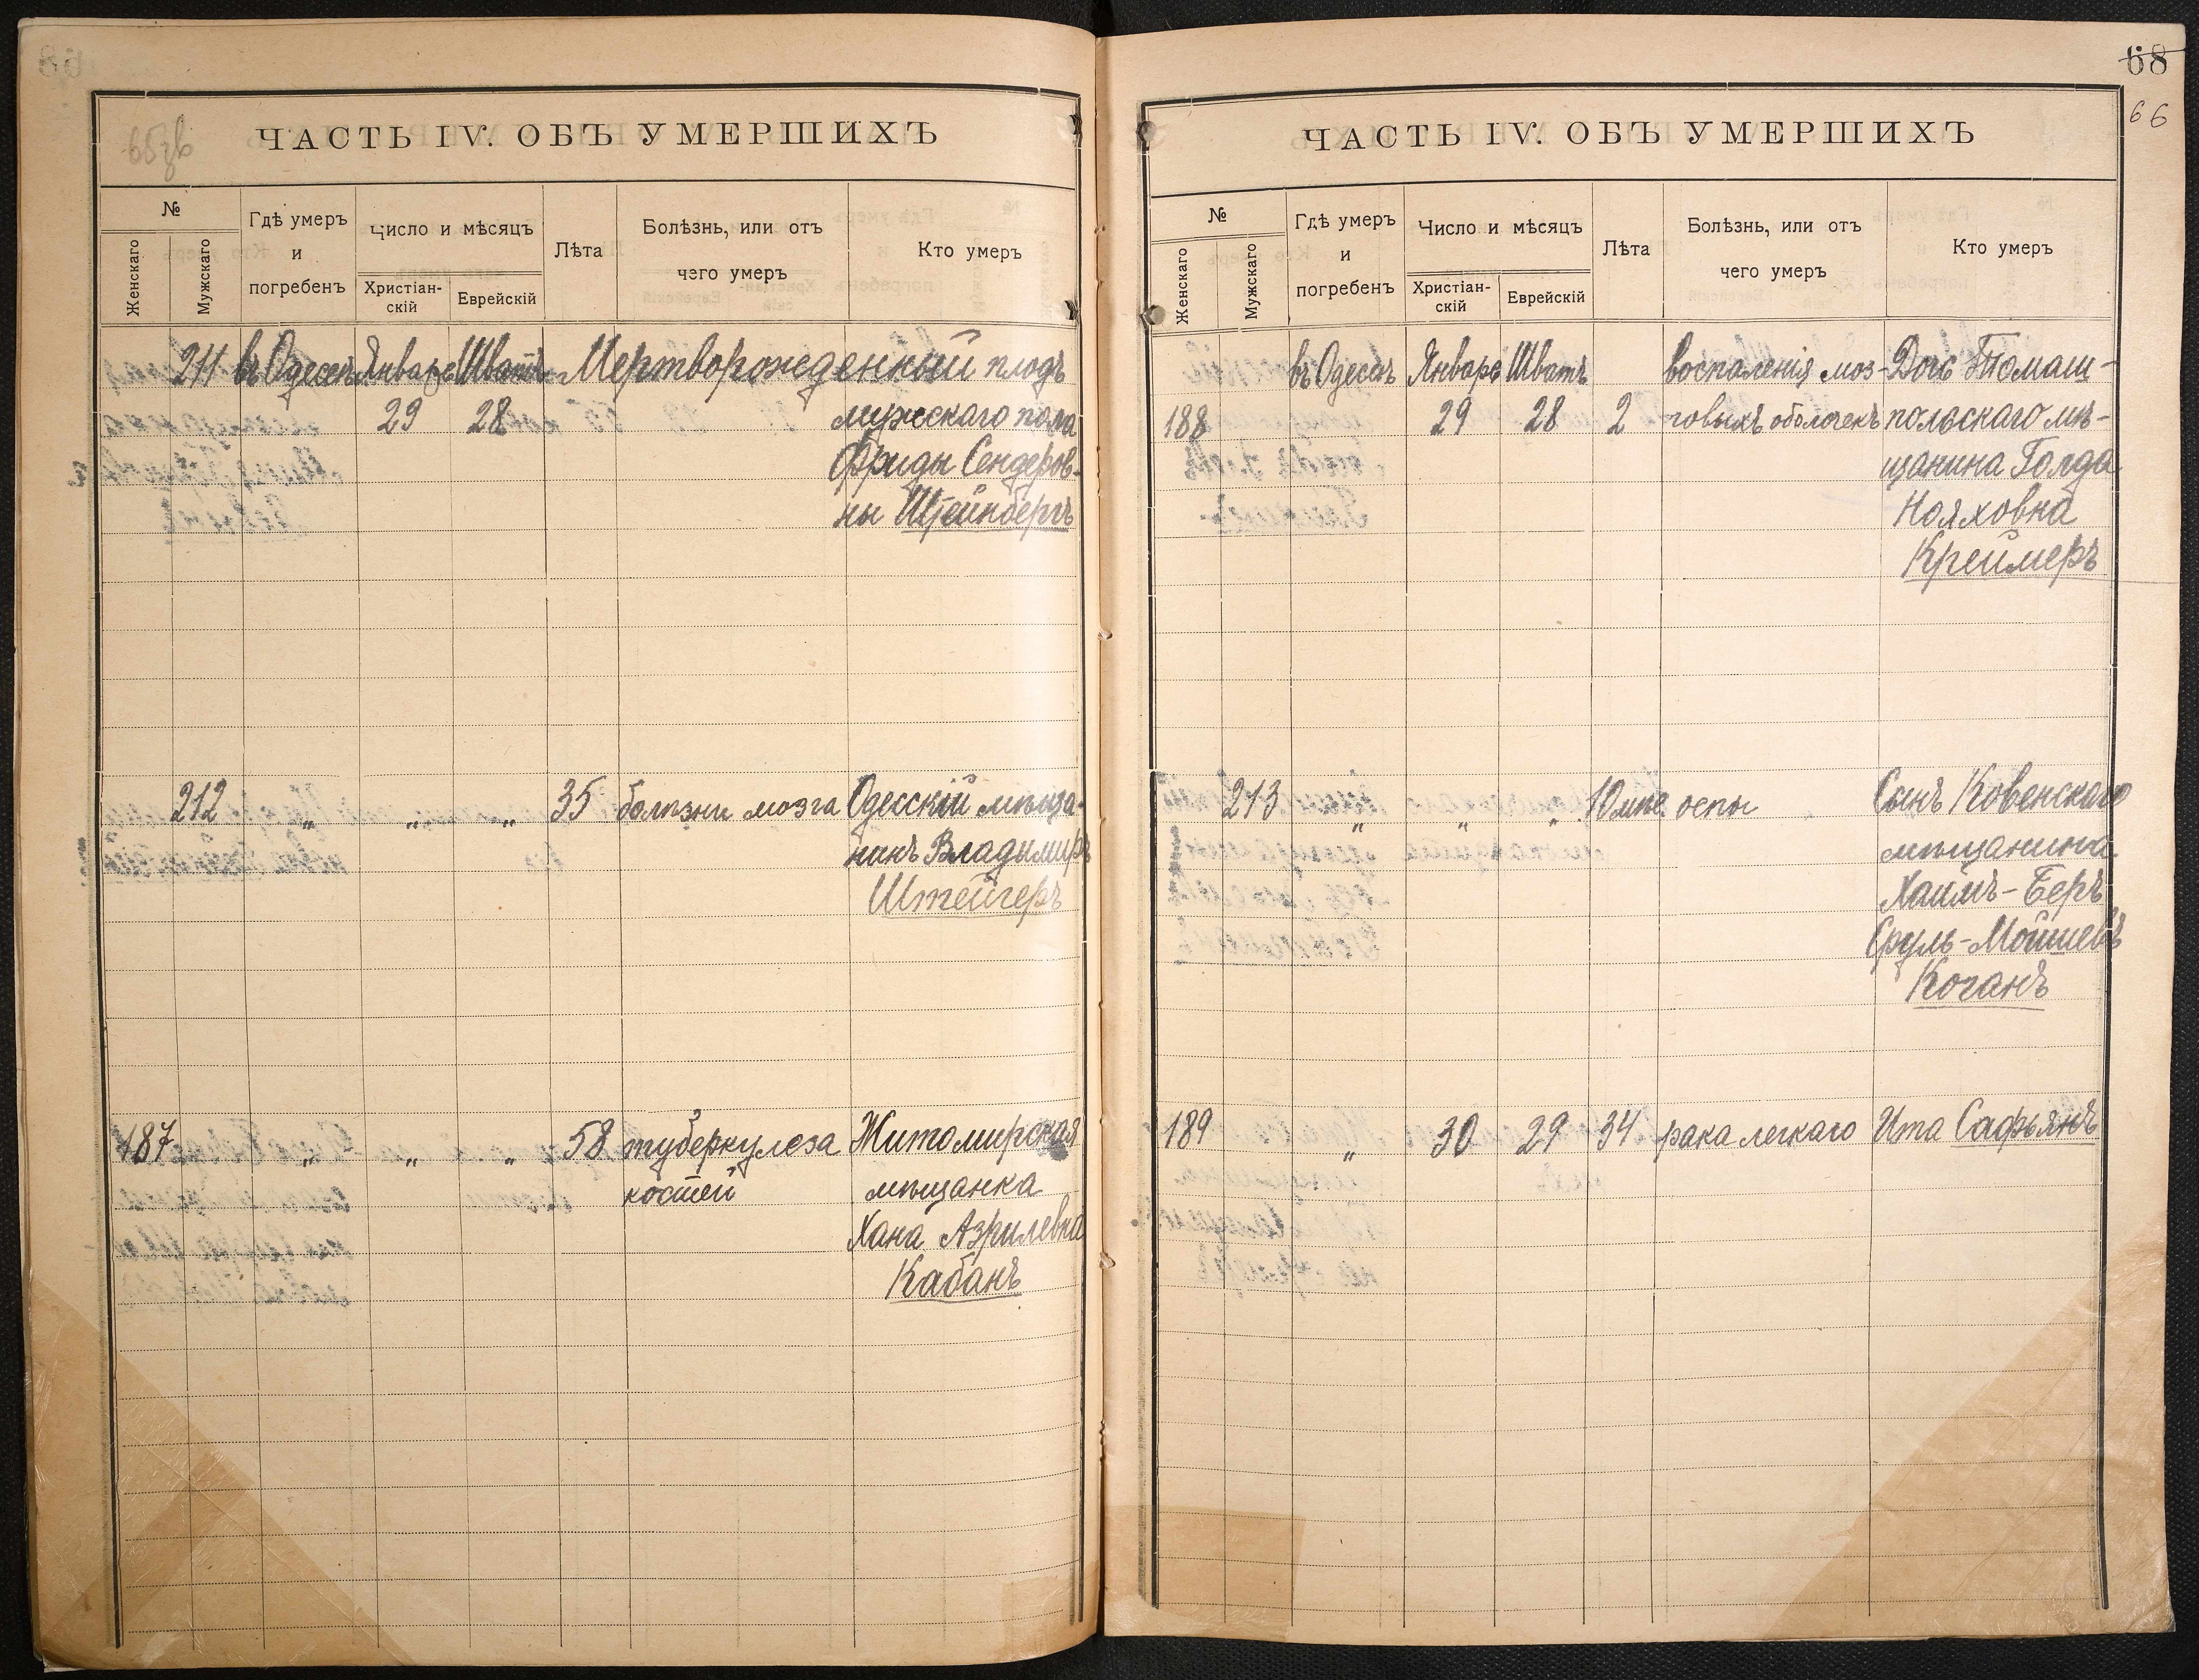 65зв
ЧАСТЬ IV. ОБЪ УМЕРШИХЪ
№
Женскаго
Мужскаго
Гдѣ умеръ
и
погребенъ
Число и мѣсяцъ
Христіан-
скій
Еврейскій
Лѣта
Болѣзнь, или отъ
чего умеръ
Кто умеръ
211 въ Одессѣ Январь Шватъ Мертворожденный плодъ
29 28 мужескаго пола
Фриды Сендеров-
ны Штейнбергъ
212 " " " 35 болѣзни мозга Одесскій мѣща-
нинъ Владимиръ
Штейгеръ
187 " " " 58 туберкулеза Житомирская
костей мѣщанка
Хана Азрилевна
Кабанъ
68
66
ЧАСТЬ IV. ОБЪ УМЕРШИХЪ
№
Женскаго
Мужскаго
Гдѣ умеръ
и
погребенъ
Число и мѣсяцъ
Христіан-
скій
Еврейскій
Лѣта
Болѣзнь, или отъ
чего умеръ
Кто умеръ
въ Одессѣ Январь Шватъ воспаленія моз- Дочь Томаш-
188 29 28 2 говыхъ оболочекъ польскаго мѣ-
щанина Голда
Нояховна
Креймеръ
213 " " " 10 мѣс. оспы Сынъ Ковенскаго
мѣщанина
Хаимъ-Беръ
Сруль-Мойшевъ
Коганъ
189 " 30 29 34 рака легкаго Ита Сафьянъ